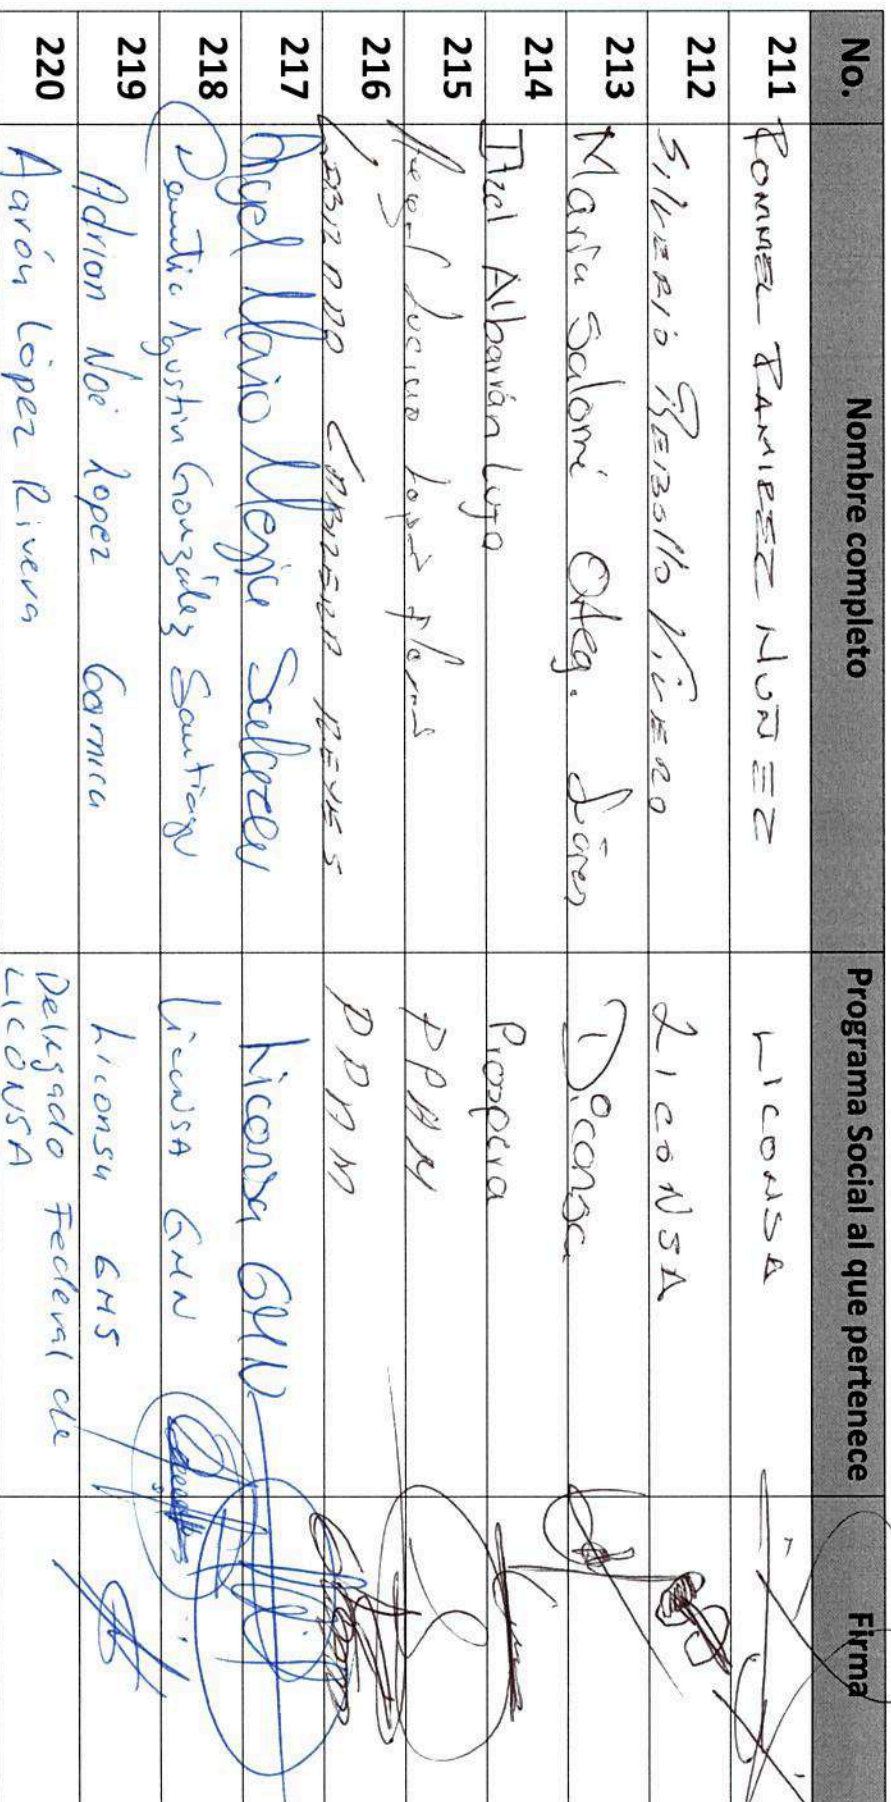 No. Nombre completo Programa Social al que pertenece Firma
211 ROMMEL RAMIREZ NUÑEZ LICONSA
212 SILVERIO REBOLLO VIVERO LICONSA
213 María Salomé Diconsa
214 Itzel Albarrán Lugo Prospera
215 López PPAM
216 CABRERA REYES PPAM
217 Angel Mario Mejía Liconsa GMN
218 Agustín González Santiago LICONSA GMN
219 Adrian Noé Lopez Garnica Liconsa GMS
220 Aarón López Rivera Delegado Federal de
LICONSA